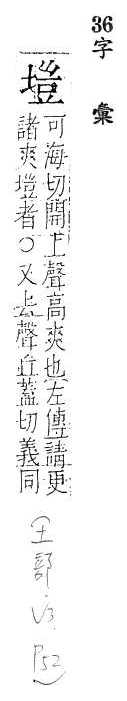 36
字彙
塏
可海切開上聲高爽也左傳請更
諸爽塏者○又去聲丘蓋切義同
土部
P52